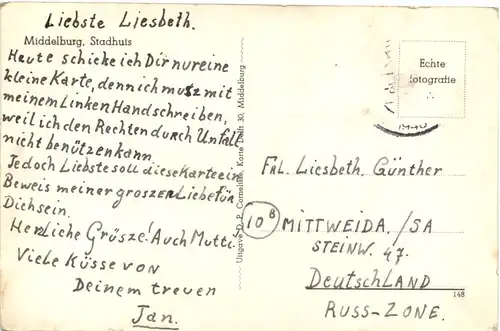 Liebste Liesbeth.
Middelburg, Stadhuis
Heute schicke ich Dir nur eine
kleine Karte, denn ich musz mit
meinem Linken Hand schreiben,
weil ich den Rechten durch Unfall
nicht benützen kann.
Jedoch Liebste soll diese Karte ein
Beweis meiner groszen Liebe für
Dich sein.
Herzliche Grüsze! Auch Mutti.
Viele Küsse von
Deinem treuen
Jan.
Uitgave D. P. Cornelisse, Korte Delft 30, Middelburg
Echte
fotografie
Frl. Liesbeth. Günther
10 B
MITTWEIDA. /SA
STEINW. 47.
DEUTSCHLAND
148
RUSS-ZONE.